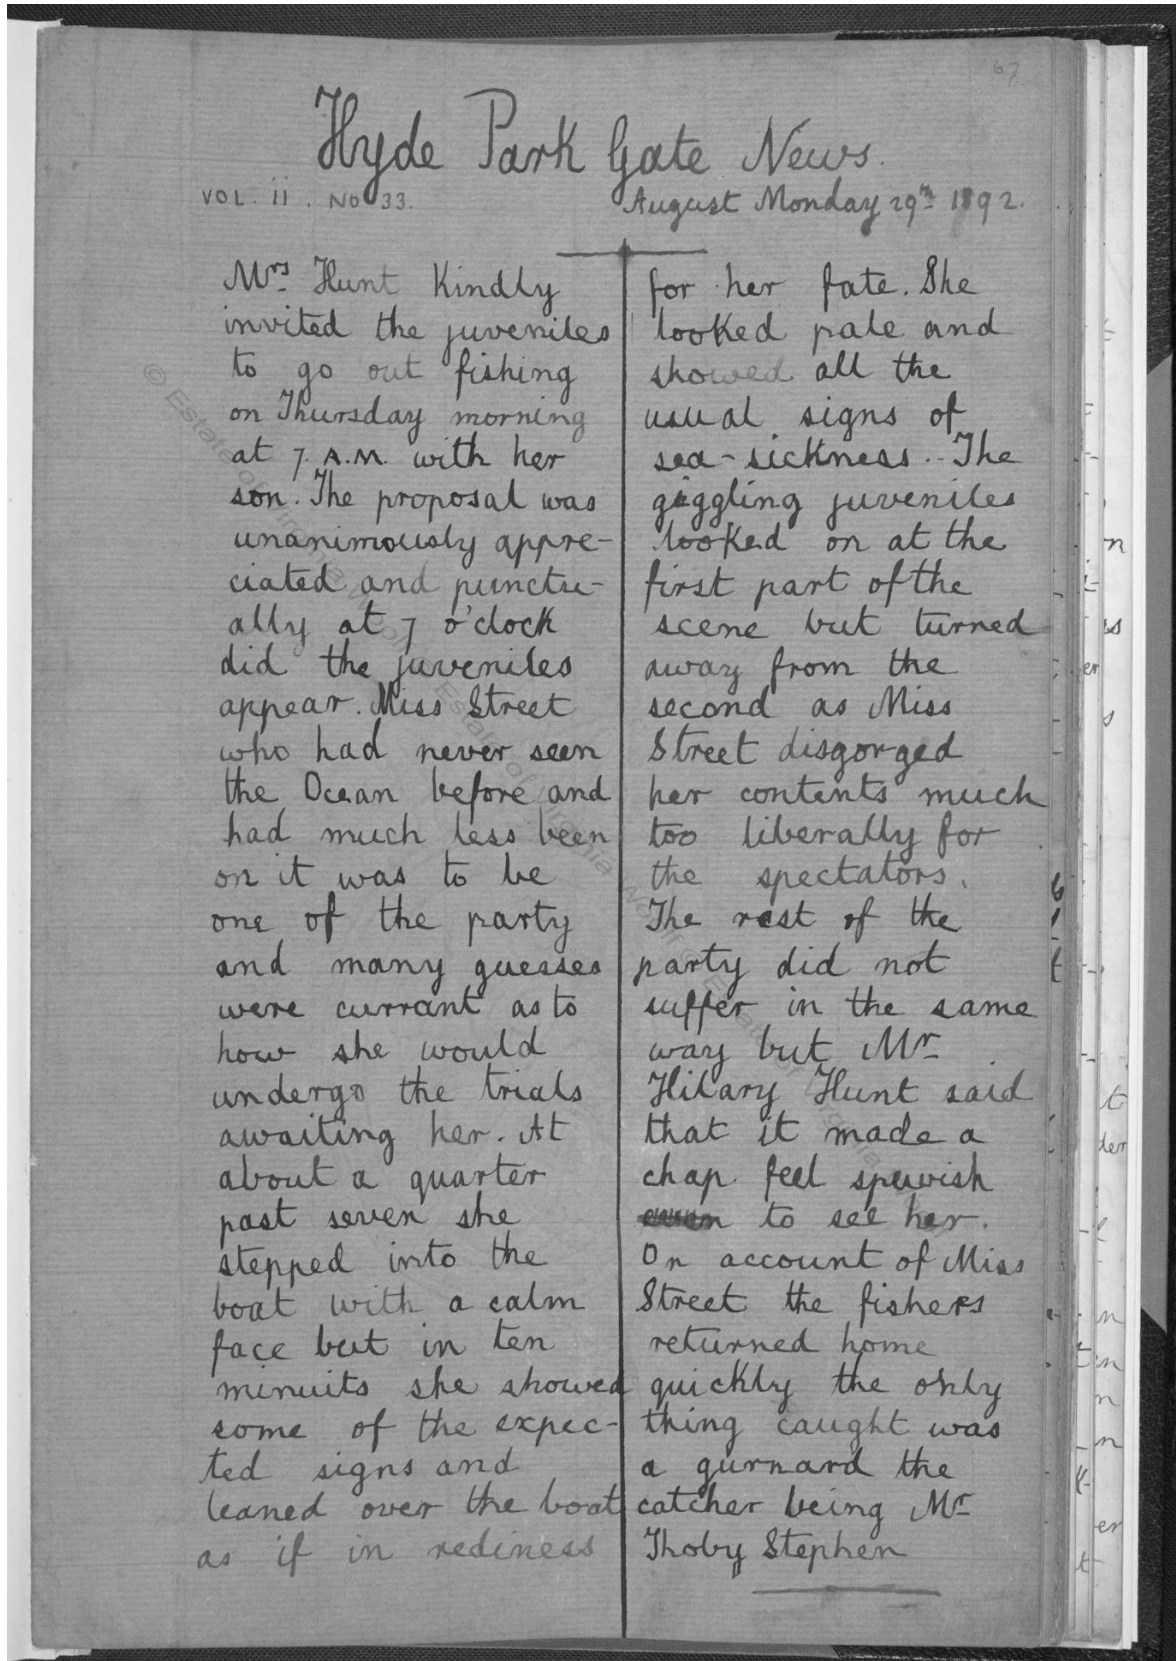 67
Hyde Park Gate News.
VOL. ii. No 33.
August Monday 29th 1892.
Mrs Hunt Kindly
invited the juveniles
to go out fishing
on Thursday morning
at 7. A.M. with her
son. The proposal was
unanimously appre-
ciated and punctu-
ally at 7 o'clock
did the juveniles
appear. Miss Street
who had never seen
the Ocean before and
had much less been
on it was to be
one of the party
and many guesses
were currant as to
how she would
undergo the trials
awaiting her. At
about a quarter
past seven she
stepped into the
boat with a calm
face but in ten
minuits she showed
some of the expec-
ted signs and
leaned over the boat
as if in rediness
for her fate. She
looked pale and
showed all the
usual signs of
sea-sickness. The
giggling juveniles
looked on at the
first part of the
scene but turned
away from the
second as Miss
Street disgorged
her contents much
too liberally for
the spectators.
The rest of the
party did not
suffer in the same
way but Mr
Hilary Hunt said
that it made a
chap feel spewish
to see her.
On account of Miss
Street the fishers
returned home
quickly the only
thing caught was
a gurnard the
catcher being Mr
Thoby Stephen